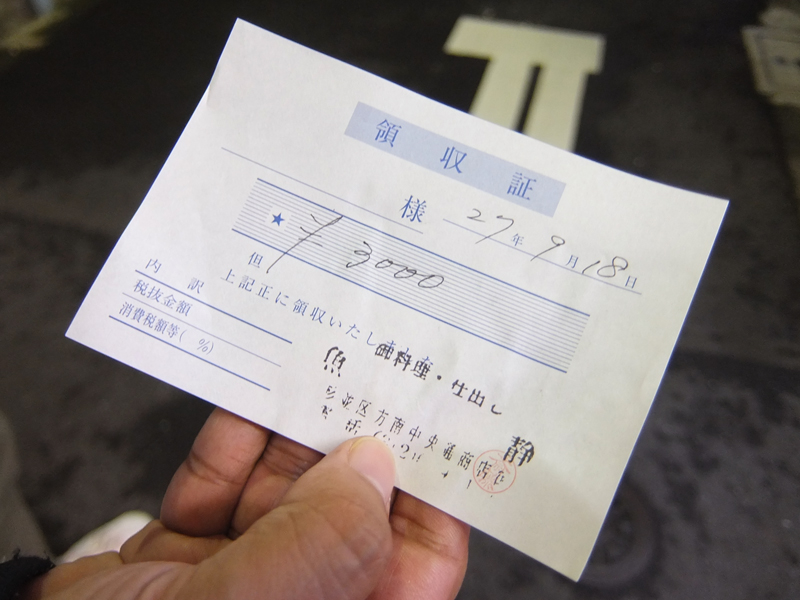 領収証
様 27年9月18日
★ ¥3000
但
上記正に領収いたしました
内訳
税抜金額
消費税額等( %)
魚 料理・仕出し
静
杉並区方南中央通商店